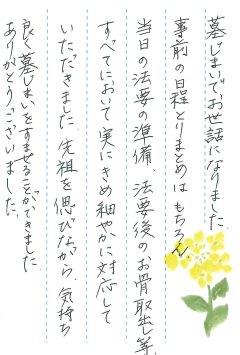 墓じまいでお世話になりました。
事前の日程とりまとめはもちろん、
当日の法要の準備、法要後のお骨取出し等、
すべてにおいて実にきめ細やかに対応して
いただきました。先祖を偲びながら、気持ち
良く墓じまいをすませることができました。
ありがとうございました。